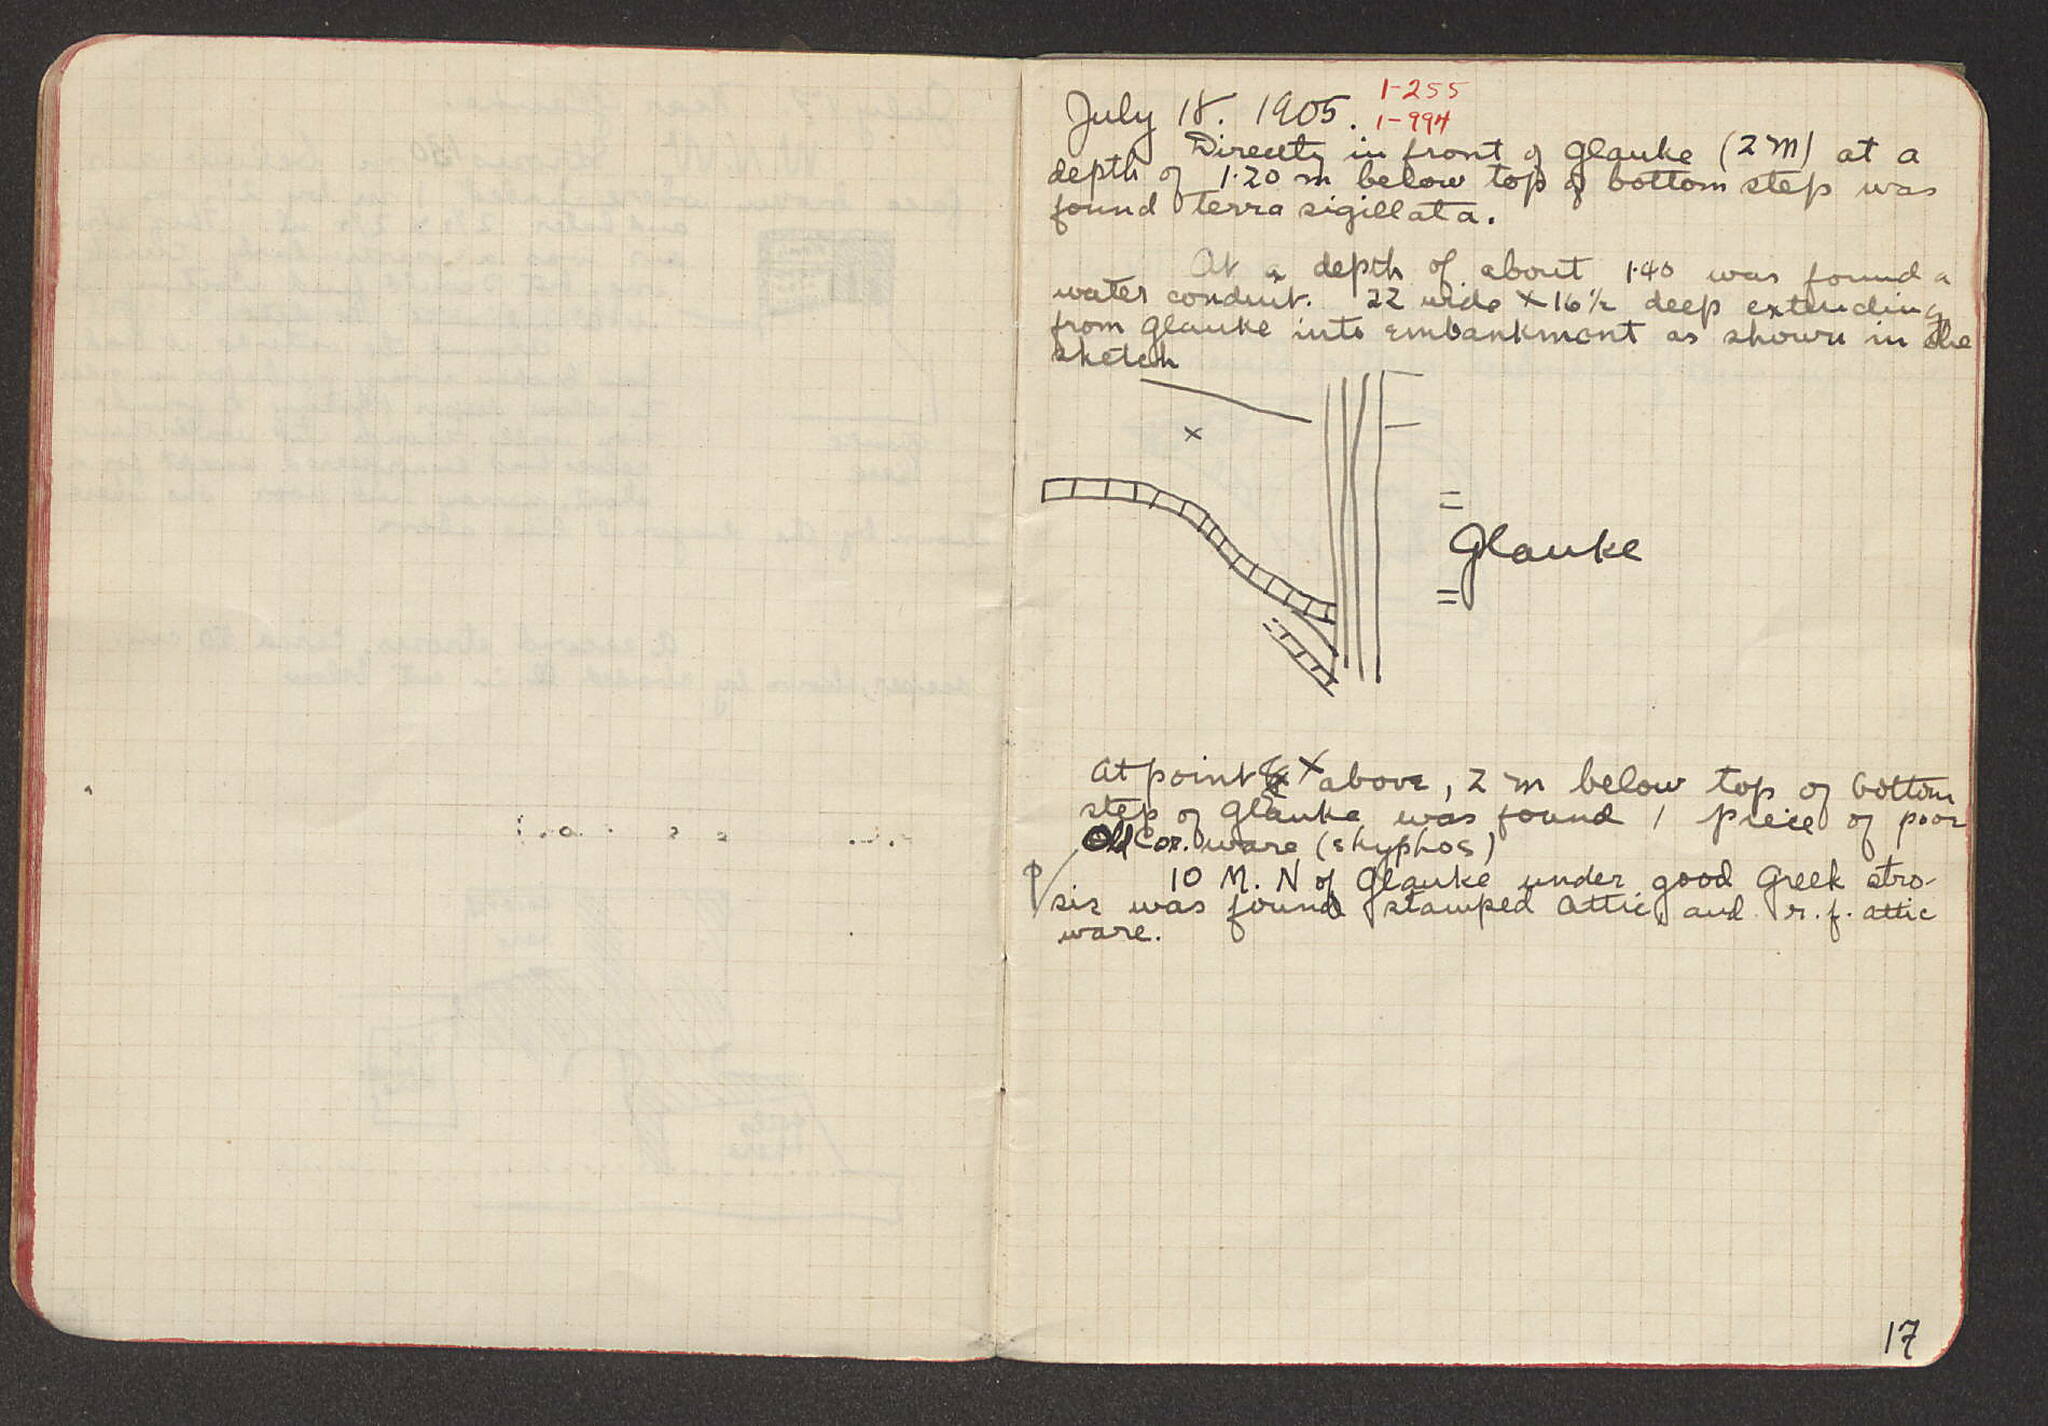 July 18. 1905. 1-255
1-994
Directly in front of Glauke (2 m) at a
depth of 1.20 m below top of bottom step was
found terra sigillata.
At a depth of about 1.40 was found a
water conduit. 22 wide x 16½ deep extending
from Glauke into embankment as shown in the
sketch
x
=
Glauke
=
At point x above, 2 m below top of bottom
step of Glauke was found 1 piece of poor
Old Cor. ware (skyphos)
10 M. N of Glauke under good Greek stro-
sis was found stamped Attic and r. f. attic
ware.
17